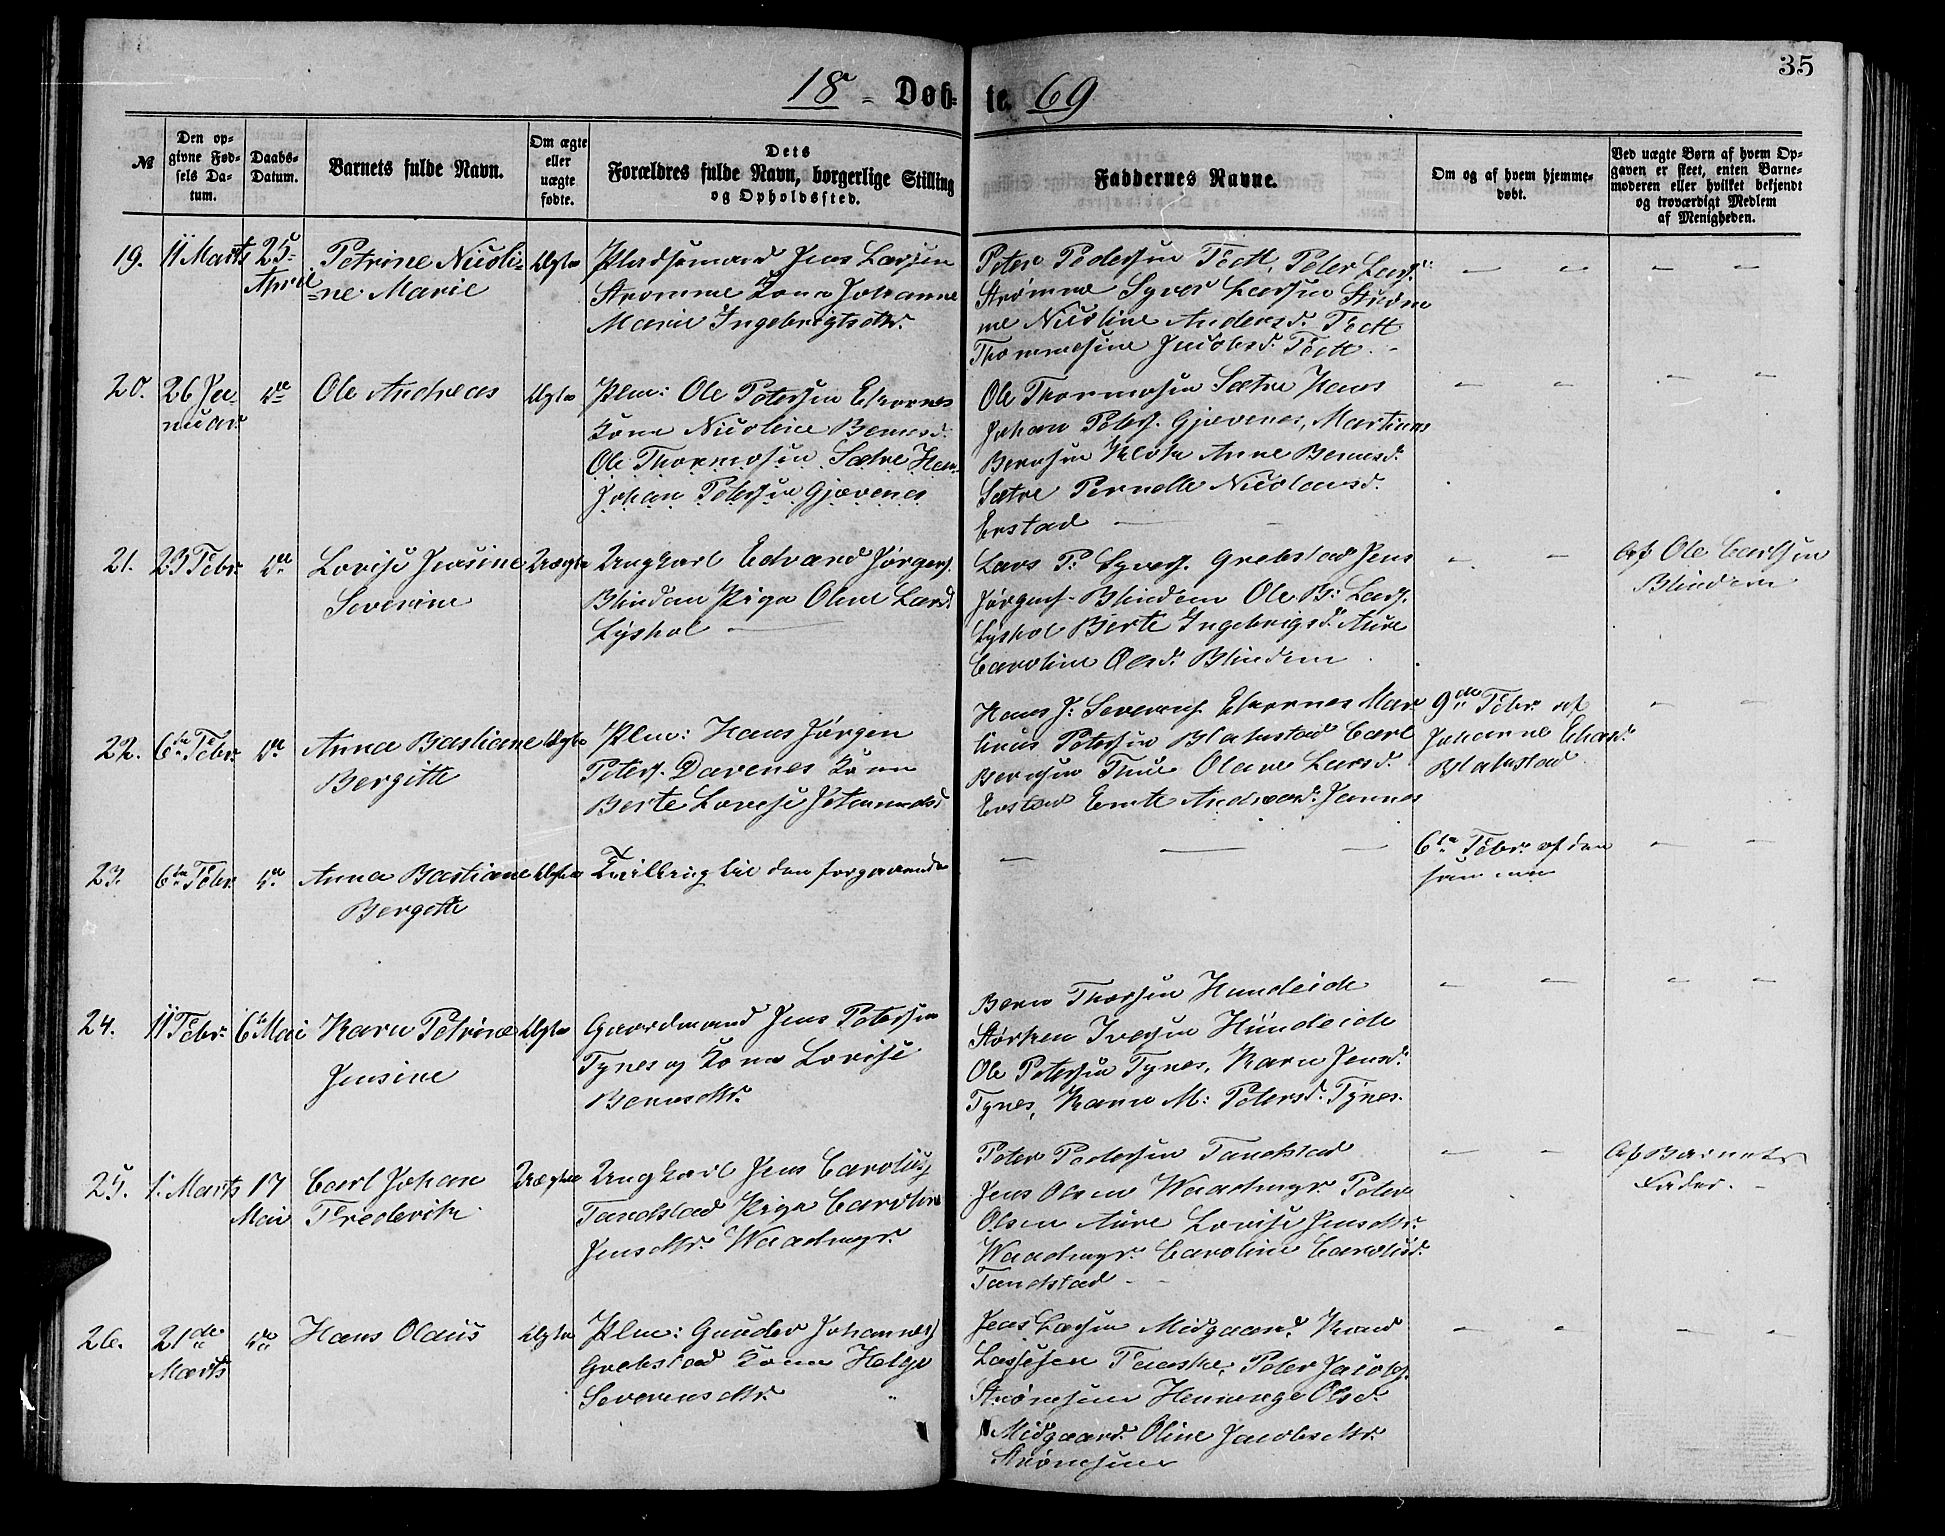 35
18 - Døb- te. 69
№
Den op-
givne Fød-
sels Da-
tum.
Daabs-
Datum.
Barnets fulde Navn.
Om ægte
eller
uægte
fødte.
Dets
Forældres fulde Navn, borgerlige Stilling
og Opholdssted.
Faddernes Navne.
Om og af hvem hjemme-
døbt.
Ved uægte Børn af hvem Op-
gaven er skeet, enten Barne-
moderen eller hvilket bekjendt
og troværdigt Medlem
af Menigheden.
19. 11 Marts 25
April
Petrine Nicoli-
ne Marie
Ægte
Pladsmand Jens Larsen
Strømme Kone Johanne
Marie Ingebrigtsdtr.
Peter Pedersen Tøtt, Peter Lars.
Strømme Syver Larsen Strøm
me Nicoline Andersd. Tøtt
Thommesine Jacobsd. Tøtt
20. 26 Ja-
nuar
do
Ole Andreas
Ægte
Plm: Ole Petersen Ekornes
Kone Nicoline Berntsd.
Ole Thormosen Sætre Hans
Johan Petersen Gjævenes
Ole Thormosen Sætre Hans
Johan Peters. Gjævenes, Martinus
Berntsen Klok Anne Berntsd.
Sætre Pernelle Nicolausd.
Erstad
21. 23 Febr. do
Lovise Jensine
Severine
Uægte
Ungkarl Edvard Jørgens.
Blindem Pige Oline Larsd.
Lyshol
Lars P. Syvers. Grebstad Jens
Jørgens. Blindem Ole B: Lars.
Lyshol Berte Ingebrigsd. Aure
Caroline Olsd. Blindem
Af Ole Carlsen
Blindem
22. 6te Febr. do
Anna Bastiane
Bergitte
Ægte
Plm: Hans Jørgen
Peters. Davenes Kone
Berte Lovise Petersd.
Hans J: Severins. Ekornes Mar
tinus Petersen Blakstad Carl
Berntsen Thue Olave Larsd.
Erstad Emte Andreasd. Jarnes
9de Febr. af
Johanne
Blakstad
23. 6te Febr. do
Anna Bastiane
Bergitte
Ægte
Tvilling til den foregaaende
6te Febr. af den
samme
24. 11 Febr. 6te Mai
Karn Petrine
Jensine
Ægte
Gaardmand Jens Petersen
Tynes og Kone Lovise
Berntsdtr.
Bernt Thorsen Hundeide
Størker Iversen Hundeide
Ole Petersen Tynes, Karn Jensd.
Tynes, Karn M: Petersd. Tynes.
25. 1. Marts 17
Mai
Carl Johan
Frederik
Uægte
Ungkarl Jens Carolius
Tandstad Pige Caroline
Jensdtr. Waadmyr.
Peter Pedersen Tandstad
Jens Olsen Waadmyr. Peter
Olsen Aure Lovise Jensdtr.
Waadmyr. Caroline Caroliusd.
Tandstad
Af Barnets
Fader.
26. 21de
Marts
do
Hans Olaus
Ægte
Plm: Gunder Johannes
Grebstad Kone Helge
Severinsdtr.
Jens Larsen Midgaard, Knud
Lassesen Tauske, Peter Jacobs.
Strømseim Hennenge Olsd.
Midgaard Oline Jacobsdtr.
Strømseim